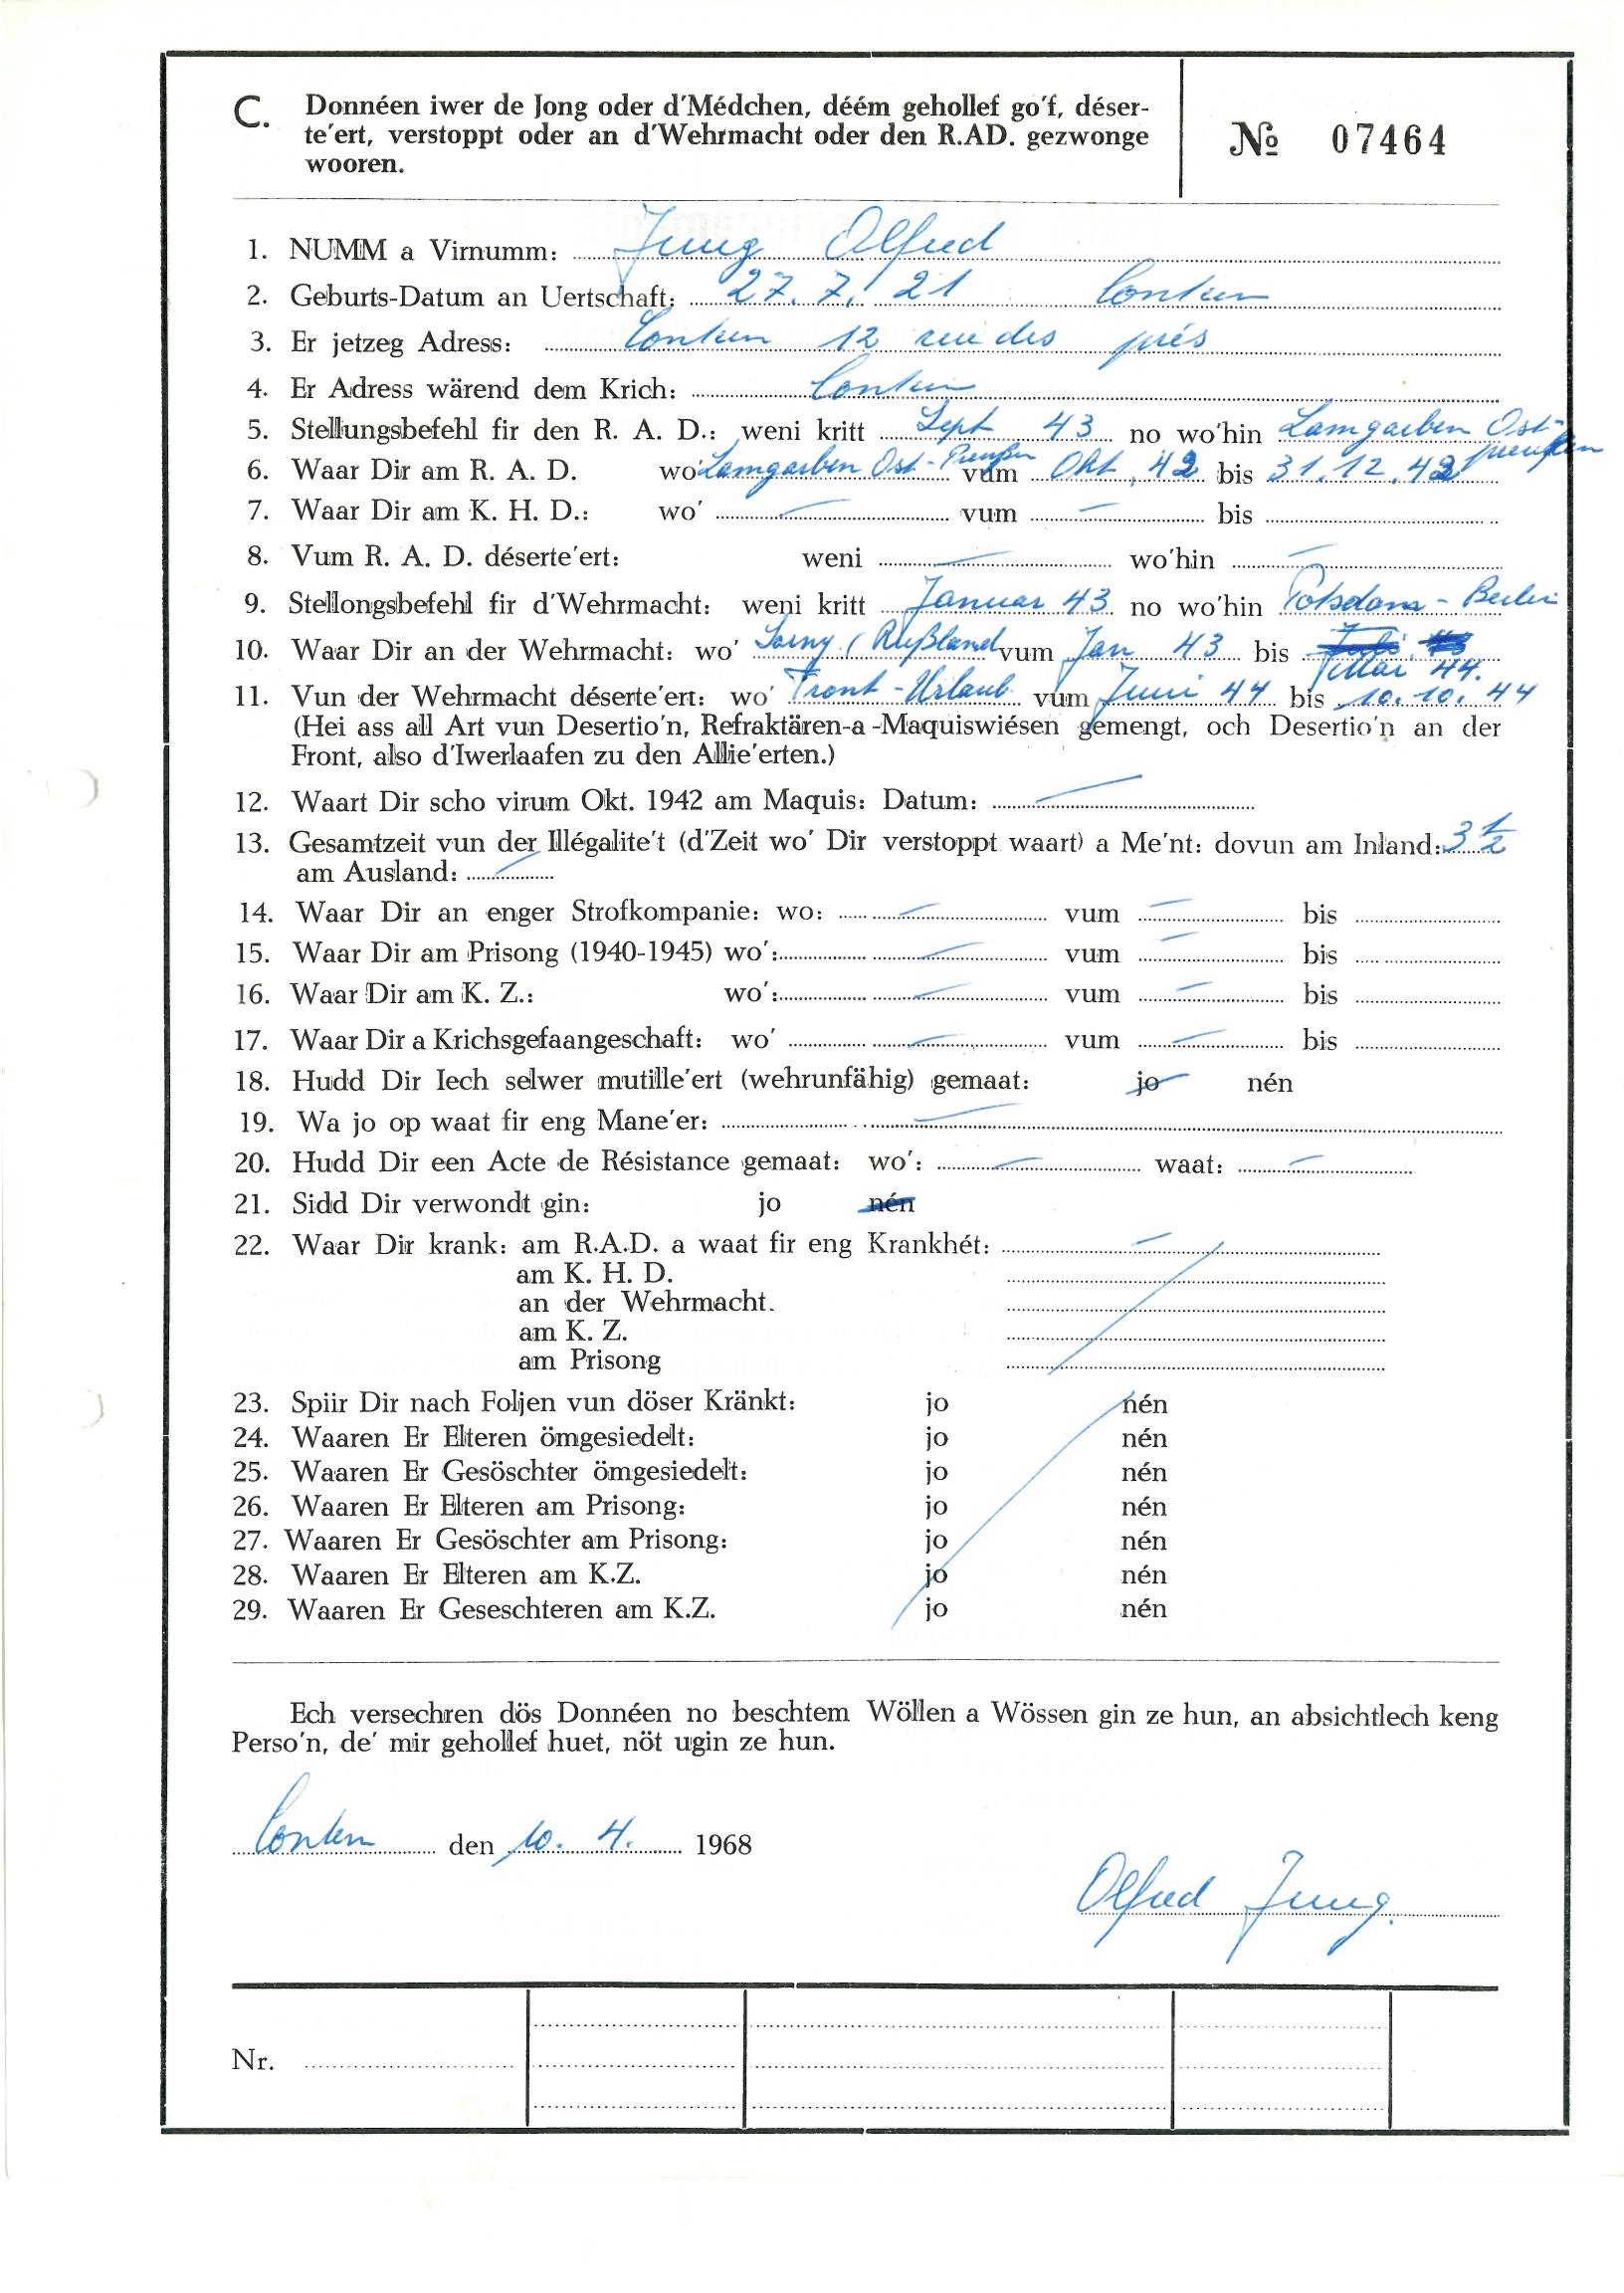 C. Donnéen iwer de Jong oder d'Médchen, déém gehollef go'f, déser-
te'ert, verstoppt oder an d'Wehrmacht oder den R.AD. gezwonge
wooren.
№ 07464
1. NUMM a Virnumm: Jung Alfred
2. Geburts-Datum an Uertschaft: 27. 7. 21 Contern
3. Er jetzeg Adress: Contern 12 rue des prés
4. Er Adress wärend dem Krich: Contern
5. Stellungsbefehl fir den R. A. D.: weni kritt Sept 43 no wo'hin Lamgarben Ost-preußen
6. Waar Dir am R. A. D. wo' Lamgarben Ost-Preußen vum Okt. 42 bis 31.12.42
7. Waar Dir am K. H. D.: wo' — vum — bis
8. Vum R. A. D. déserte'ert: weni — wo'hin —
9. Stellongsbefehl fir d'Wehrmacht: weni kritt Januar 43 no wo'hin Potsdam - Berlin
10. Waar Dir an der Wehrmacht: wo' Sarny / Rußland vum Jan 43 bis Mai 44.
11. Vun der Wehrmacht déserte'ert: wo' Front-Urlaub vum Juni 44 bis 10.10.44
(Hei ass all Art vun Desertio'n, Refraktären-a-Maquiswiésen gemengt, och Desertio'n an der
Front, also d'Iwerlaafen zu den Allie'erten.)
12. Waart Dir scho virum Okt. 1942 am Maquis: Datum: —
13. Gesamtzeit vun der Illégalite't (d'Zeit wo' Dir verstoppt waart) a Me'nt: dovun am Inland: 3 1/2
am Ausland: —
14. Waar Dir an enger Strofkompanie: wo: — vum — bis
15. Waar Dir am Prisong (1940-1945) wo': — vum — bis
16. Waar Dir am K. Z.: wo': — vum — bis
17. Waar Dir a Krichsgefaangeschaft: wo' — vum — bis
18. Hudd Dir Iech selwer mutille'ert (wehrunfähig) gemaat: jo nén
19. Wa jo op waat fir eng Mane'er: —
20. Hudd Dir een Acte de Résistance gemaat: wo': — waat: —
21. Sidd Dir verwondt gin: jo nén
22. Waar Dir krank: am R.A.D. a waat fir eng Krankhét: —
am K. H. D.
an der Wehrmacht.
am K. Z.
am Prisong
23. Spiir Dir nach Foljen vun döser Kränkt: jo nén
24. Waaren Er Elteren ömgesiedelt: jo nén
25. Waaren Er Gesöschter ömgesiedelt: jo nén
26. Waaren Er Elteren am Prisong: jo nén
27. Waaren Er Gesöschter am Prisong: jo nén
28. Waaren Er Elteren am K.Z. jo nén
29. Waaren Er Geseschteren am K.Z. jo nén
Ech versechren dös Donnéen no beschtem Wöllen a Wössen gin ze hun, an absichtlech keng
Perso'n, de' mir gehollef huet, nöt ugin ze hun.
Contern den 10. 4. 1968
Alfred Jung.
Nr.